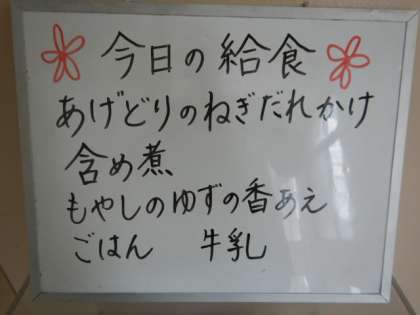 今日の給食
あげどりのねぎだれかけ
含め煮
もやしのゆずの香あえ
ごはん 牛乳